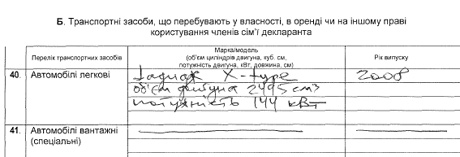 Б. Транспортні засоби, що перебувають у власності, в оренді чи на іншому праві
користування членів сім'ї декларанта
Перелік транспортних засобів
Марка/модель
(об'єм циліндрів двигуна, куб. см,
потужність двигуна, кВт, довжина, см)
Рік випуску
40. Автомобілі легкові
Jaguar X-type
об'єм двигуна 2495 см3
потужність 144 кВт
2008
41. Автомобілі вантажні
(спеціальні)